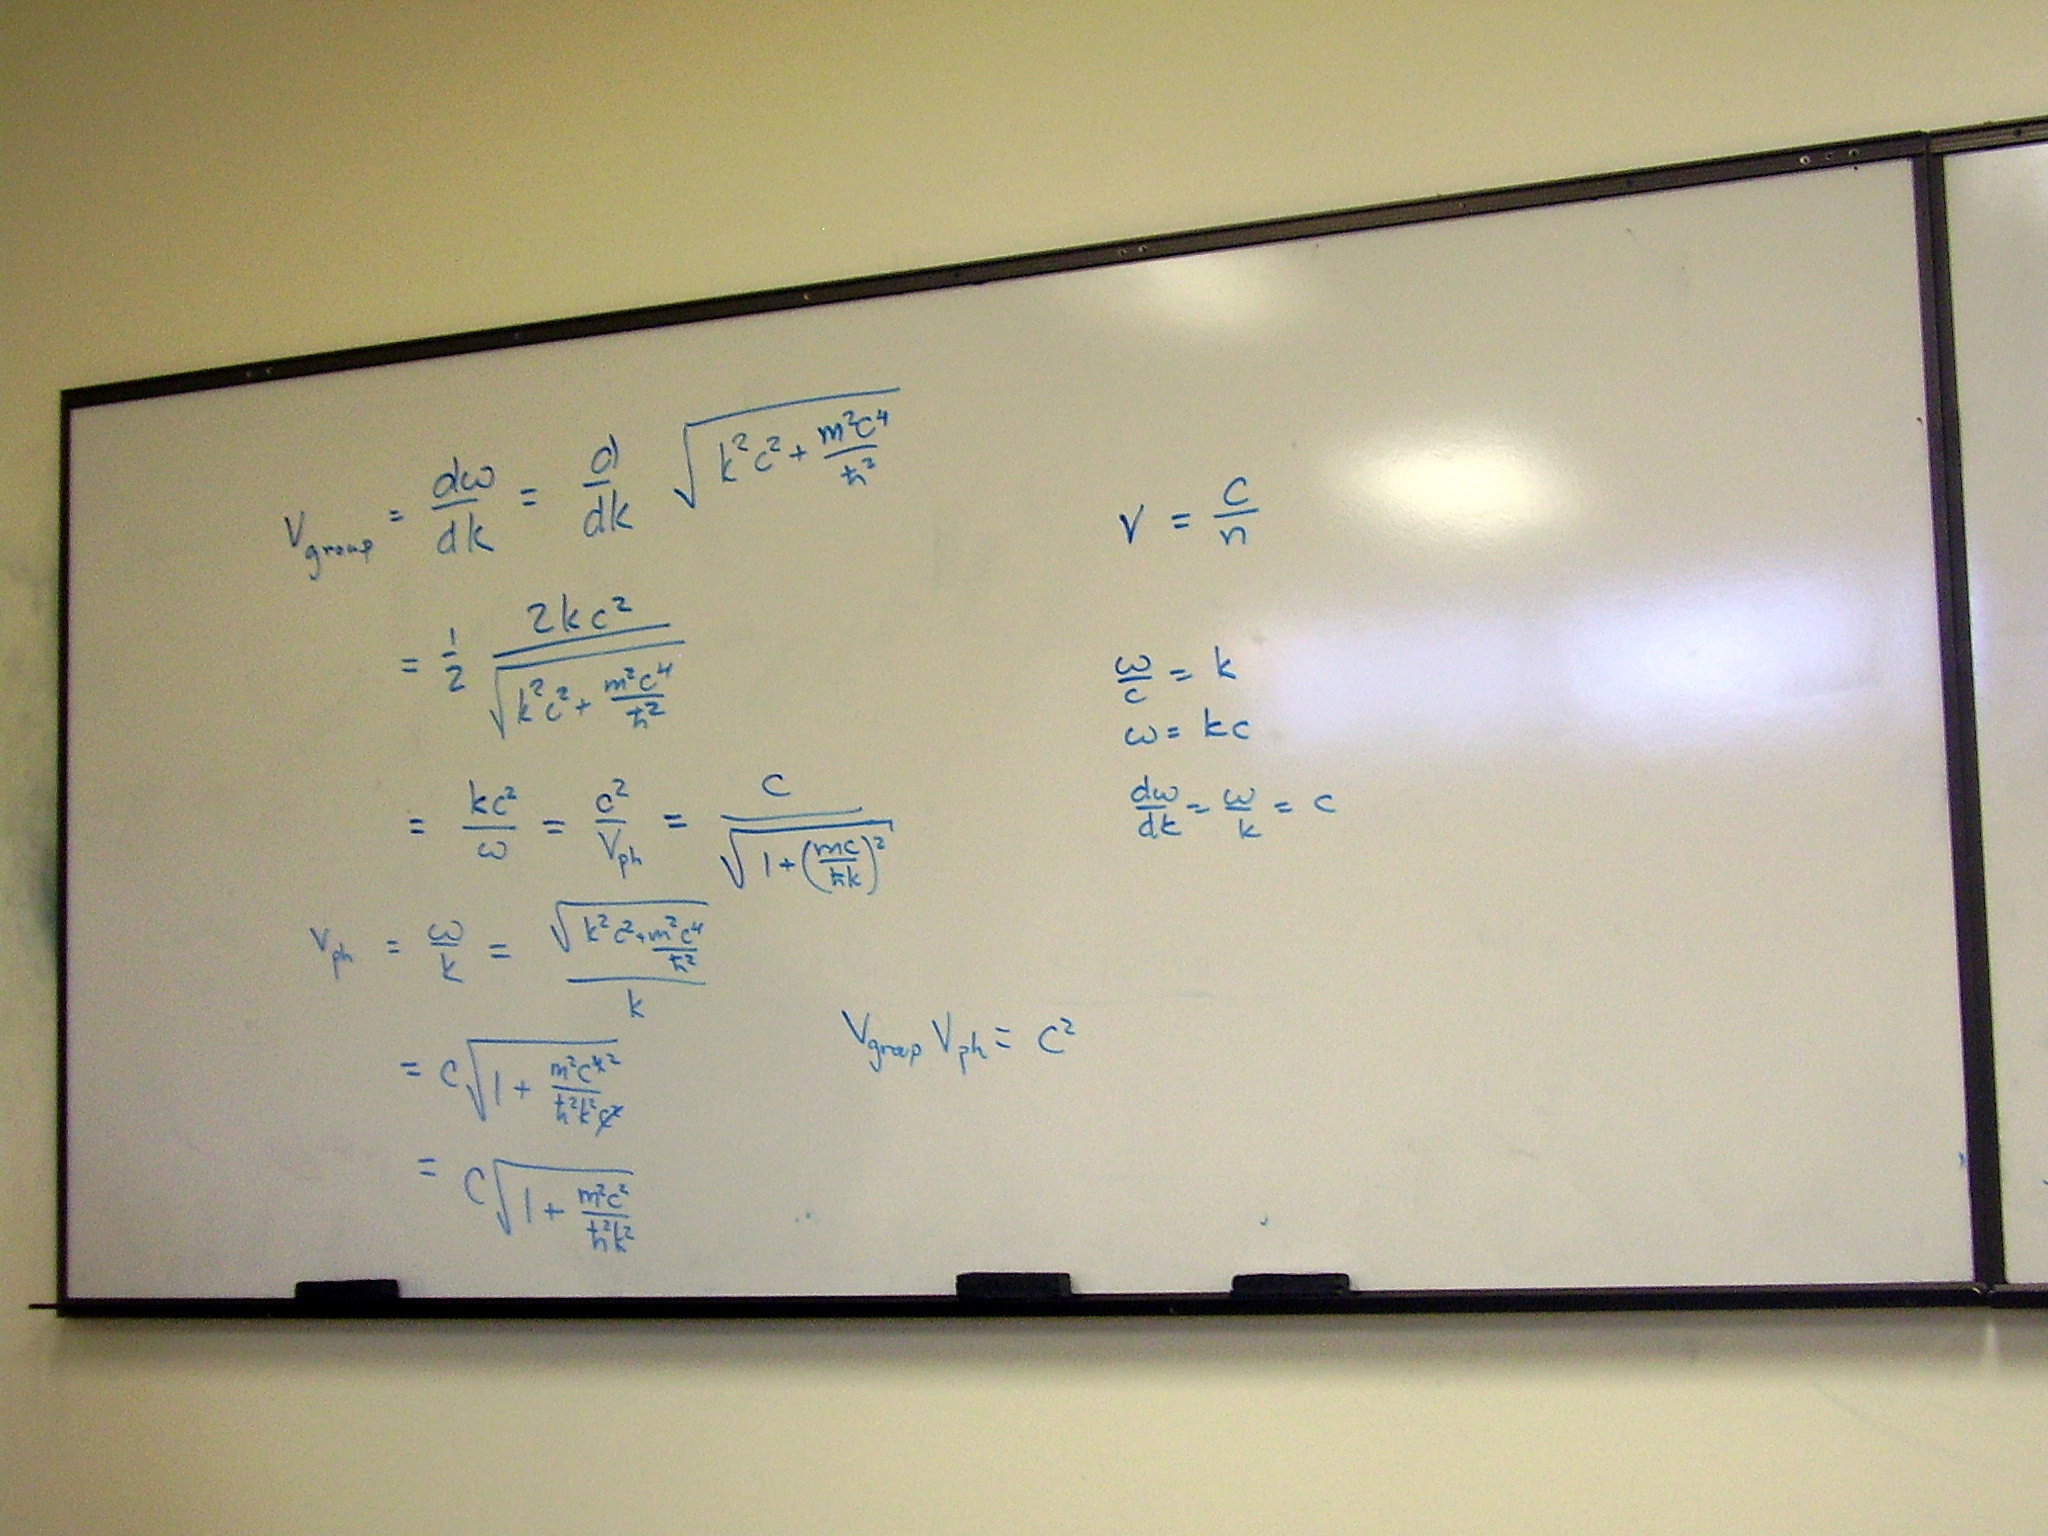 V_group = dω/dk = d/dk √(k²c² + m²c⁴/ħ²)
= 1/2 2kc²/√(k²c² + m²c⁴/ħ²)
= kc²/ω = c²/V_ph = c/√(1 + (mc/ħk)²)
V_ph = ω/k = √(k²c² + m²c⁴/ħ²)/k
= c√(1 + m²c⁴²/ħ²k²c²)
= c√(1 + m²c²/ħ²k²)
V_group V_ph = c²
V = c/n
ω/c = k
ω = kc
dω/dk = ω/k = c